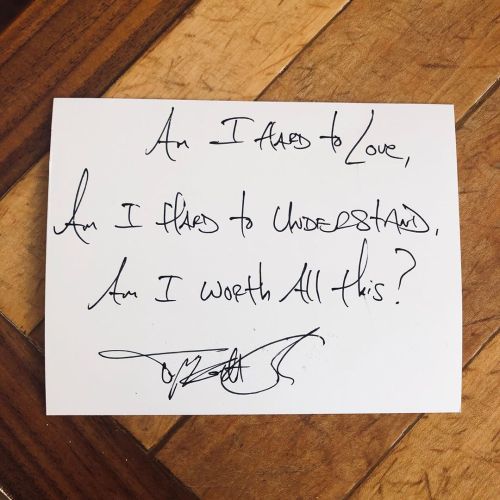 Am I HARD to Love,
Am I HARD to UNDERStAND,
Am I WORth All this?